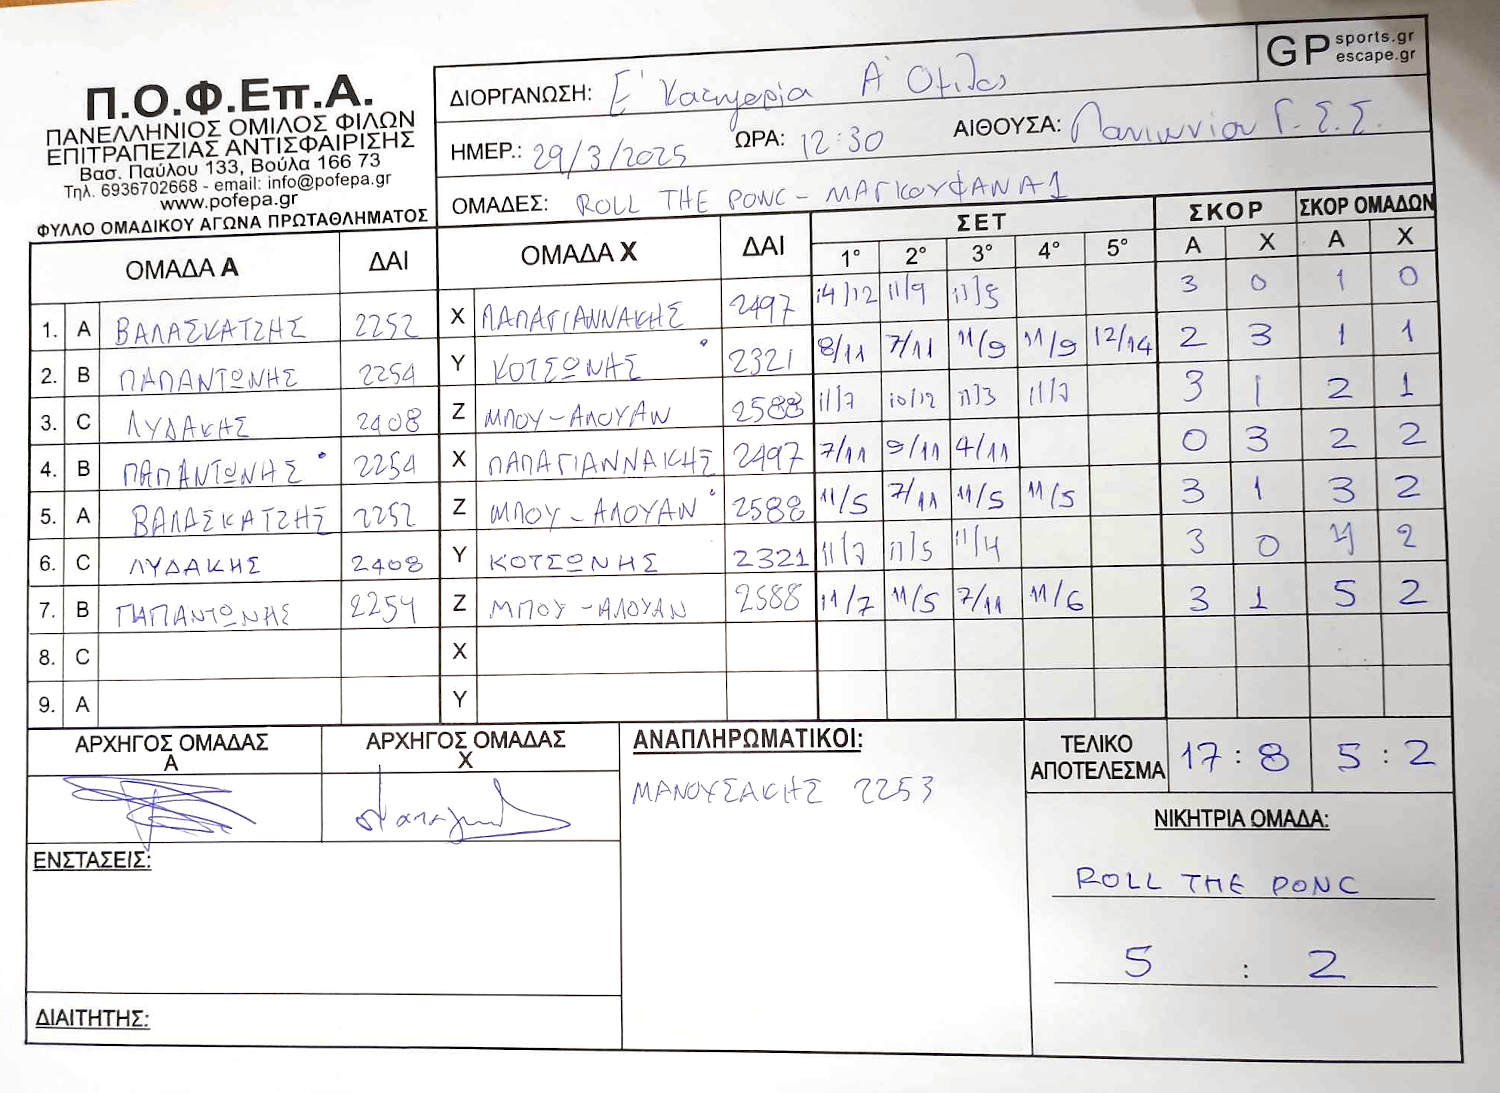 GP sports.gr
escape.gr
Π.Ο.Φ.Επ.Α.
ΠΑΝΕΛΛΗΝΙΟΣ ΟΜΙΛΟΣ ΦΙΛΩΝ
ΕΠΙΤΡΑΠΕΖΙΑΣ ΑΝΤΙΣΦΑΙΡΙΣΗΣ
Βασ. Παύλου 133, Βούλα 166 73
Τηλ. 6936702668 - email: info@pofepa.gr
www.pofepa.gr
ΦΥΛΛΟ ΟΜΑΔΙΚΟΥ ΑΓΩΝΑ ΠΡΩΤΑΘΛΗΜΑΤΟΣ
ΔΙΟΡΓΑΝΩΣΗ: Ε' Κατηγορία Α' Όμιλος
ΗΜΕΡ.: 29/3/2025 ΩΡΑ: 12:30 ΑΙΘΟΥΣΑ: Πανιωνίου Γ.Σ.Σ.
ΟΜΑΔΕΣ: ROLL THE PONG - ΜΑΓΚΟΥΦΑΝΑ 1
ΟΜΑΔΑ Α ΔΑΙ ΟΜΑΔΑ Χ ΔΑΙ ΣΕΤ ΣΚΟΡ ΣΚΟΡ ΟΜΑΔΩΝ
1° 2° 3° 4° 5° Α Χ Α Χ
1. Α ΒΑΛΑΣΚΑΤΖΗΣ 2252 Χ ΠΑΠΑΓΙΑΝΝΑΚΗΣ 2497 14/12 11/9 11/5 3 0 1 0
2. Β ΠΑΠΑΝΤΩΝΗΣ 2254 Υ ΚΟΤΣΩΝΗΣ 2321 8/11 7/11 11/9 11/9 12/14 2 3 1 1
3. C ΛΥΔΑΚΗΣ 2408 Ζ ΜΠΟΥ-ΑΛΟΥΑΝ 2588 11/7 10/12 11/3 11/7 3 1 2 1
4. Β ΠΑΠΑΝΤΩΝΗΣ 2254 Χ ΠΑΠΑΓΙΑΝΝΑΚΗΣ 2497 7/11 9/11 4/11 0 3 2 2
5. Α ΒΑΛΑΣΚΑΤΖΗΣ 2252 Ζ ΜΠΟΥ-ΑΛΟΥΑΝ 2588 11/5 7/11 11/5 11/5 3 1 3 2
6. C ΛΥΔΑΚΗΣ 2408 Υ ΚΟΤΣΩΝΗΣ 2321 11/7 11/5 11/4 3 0 4 2
7. Β ΠΑΠΑΝΤΩΝΗΣ 2254 Ζ ΜΠΟΥ-ΑΛΟΥΑΝ 2588 11/7 11/5 7/11 11/6 3 1 5 2
8. C Χ
9. Α Υ
ΑΡΧΗΓΟΣ ΟΜΑΔΑΣ Α ΑΡΧΗΓΟΣ ΟΜΑΔΑΣ Χ ΑΝΑΠΛΗΡΩΜΑΤΙΚΟΙ: ΤΕΛΙΚΟ ΑΠΟΤΕΛΕΣΜΑ 17 : 8 5 : 2
ΜΑΝΟΥΣΑΚΗΣ 2253
ΝΙΚΗΤΡΙΑ ΟΜΑΔΑ:
ΕΝΣΤΑΣΕΙΣ:
ROLL THE PONG
5 : 2
ΔΙΑΙΤΗΤΗΣ: